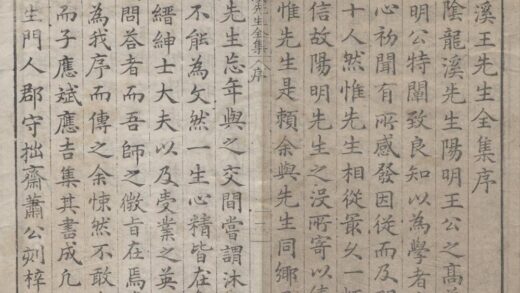 溪王先生全集序
陰龍溪先生陽明王公之高
明公特闡致良知以為學者
心初聞有所感發因從而及
十人然惟先生相從最久一
信故陽明先生之沒所寄以
惟先生是賴余與先生同鄉
先生全集 序
先生忘年與之交間嘗謂沐
不能為文然一生心精皆在
縉紳士大夫以及受業之英
問答者而吾師之微旨在焉
為我序而傳之余悚然不敢
而子應斌應吉集其書成凡
生門人郡守拙齋蕭公刻梓